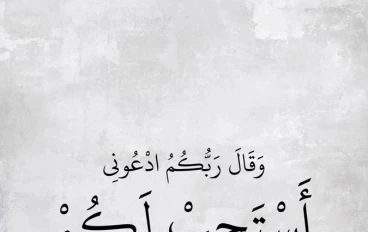 وَقَالَ رَبُّكُمُ ادْعُونِي
أَسْتَجِبْ لَكُمْ